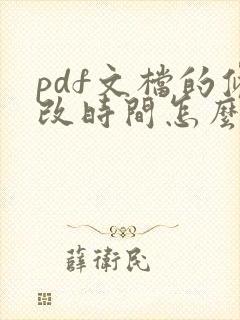 pdf文檔的修
改時間怎麼
薛衛民